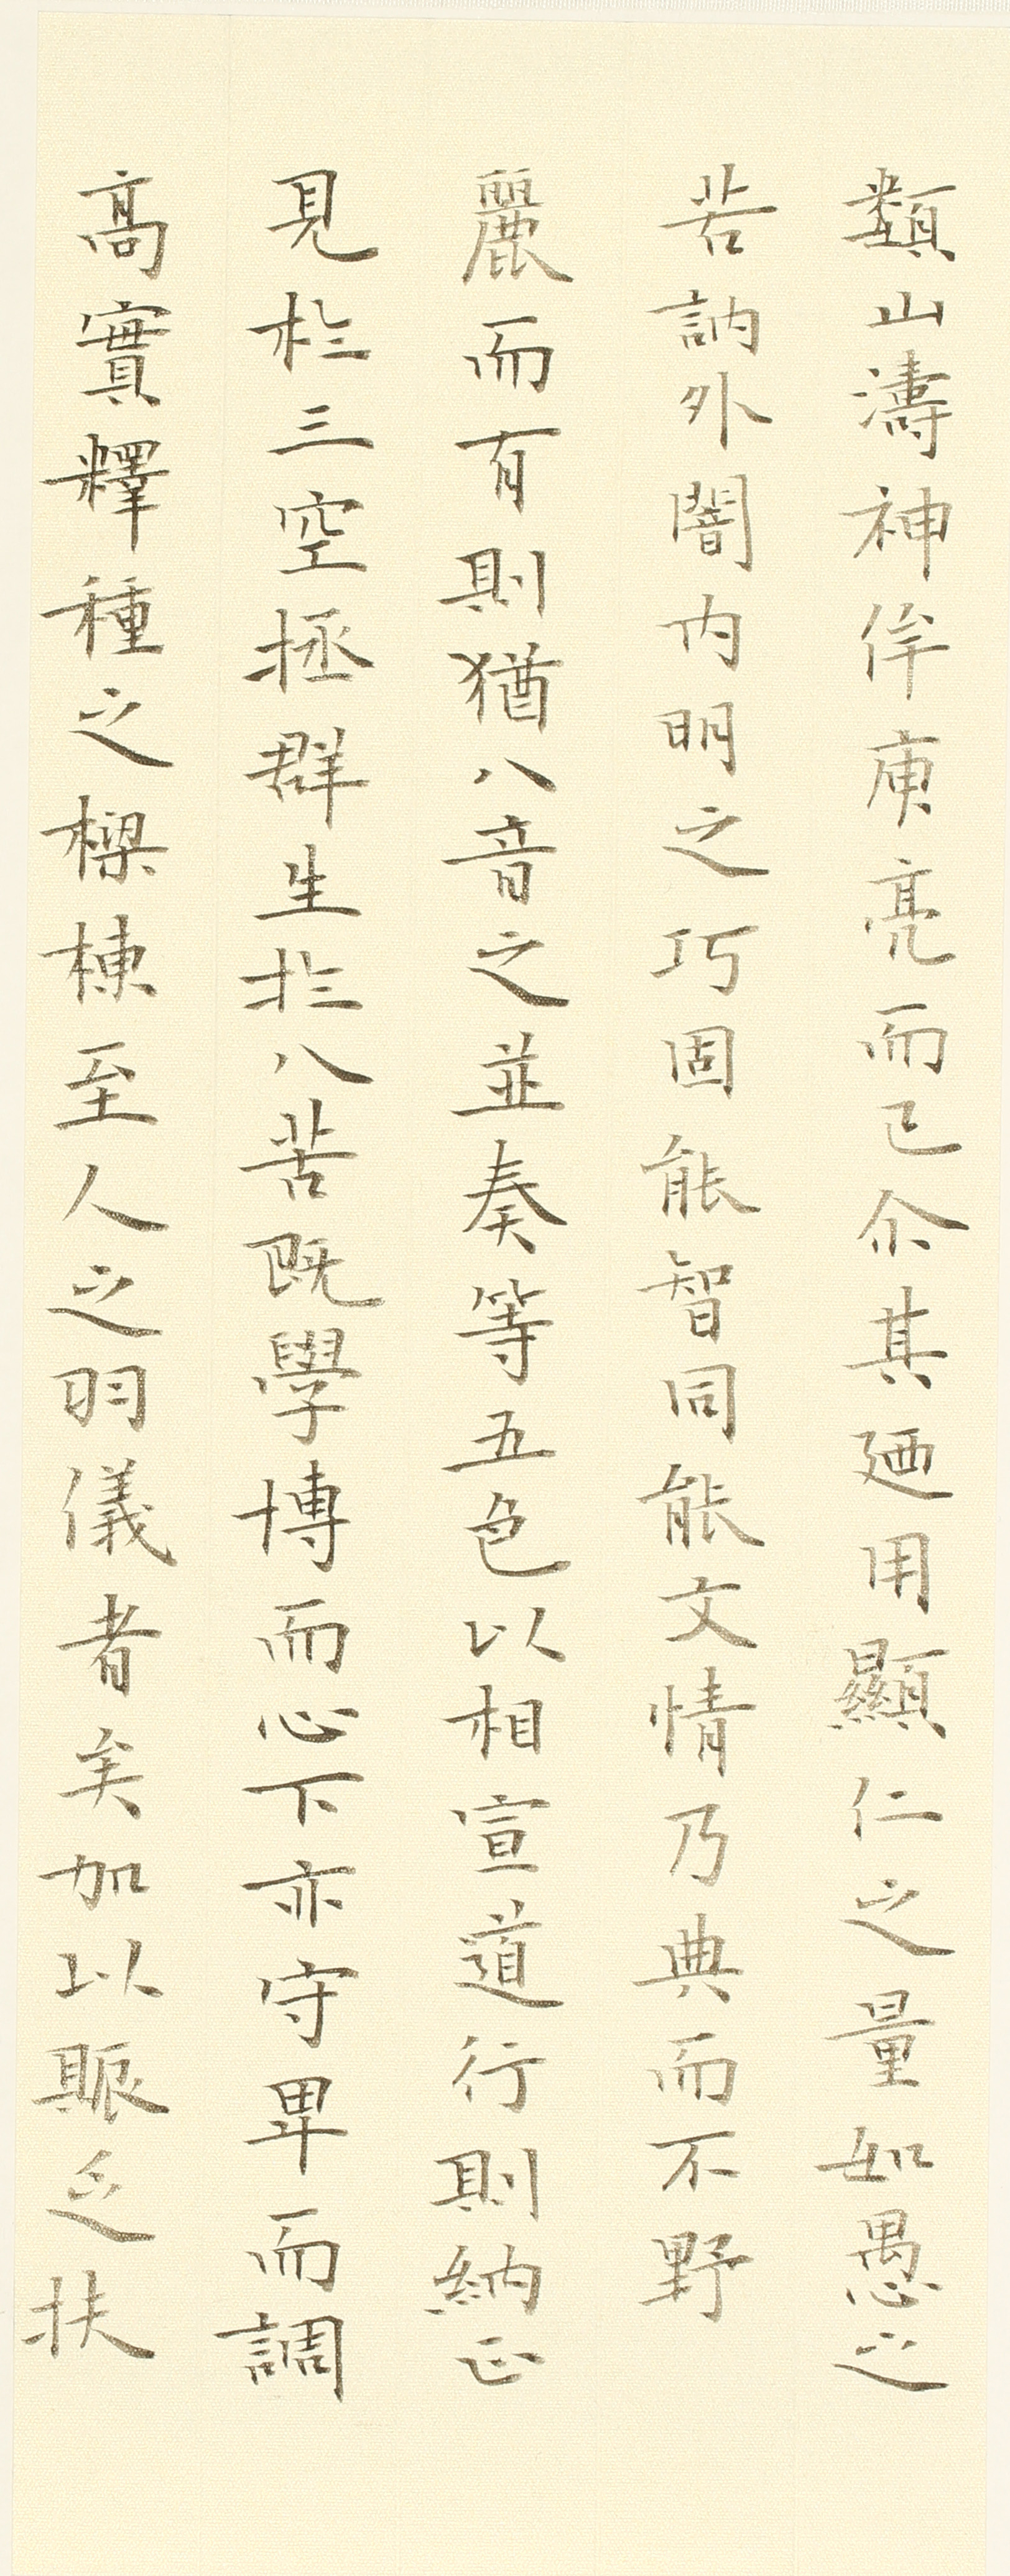 類山濤神侔庾亮而已尒其廼用顯仁之量如愚之
若訥外闇内明之巧固能智同能文情乃典而不野
麗而有則猶八音之並奏等五色以相宣道行則納正
見於三空拯群生於八苦既學博而心下亦守卑而調
高實釋種之樑棟至人之羽儀者矣加以賑乏扶